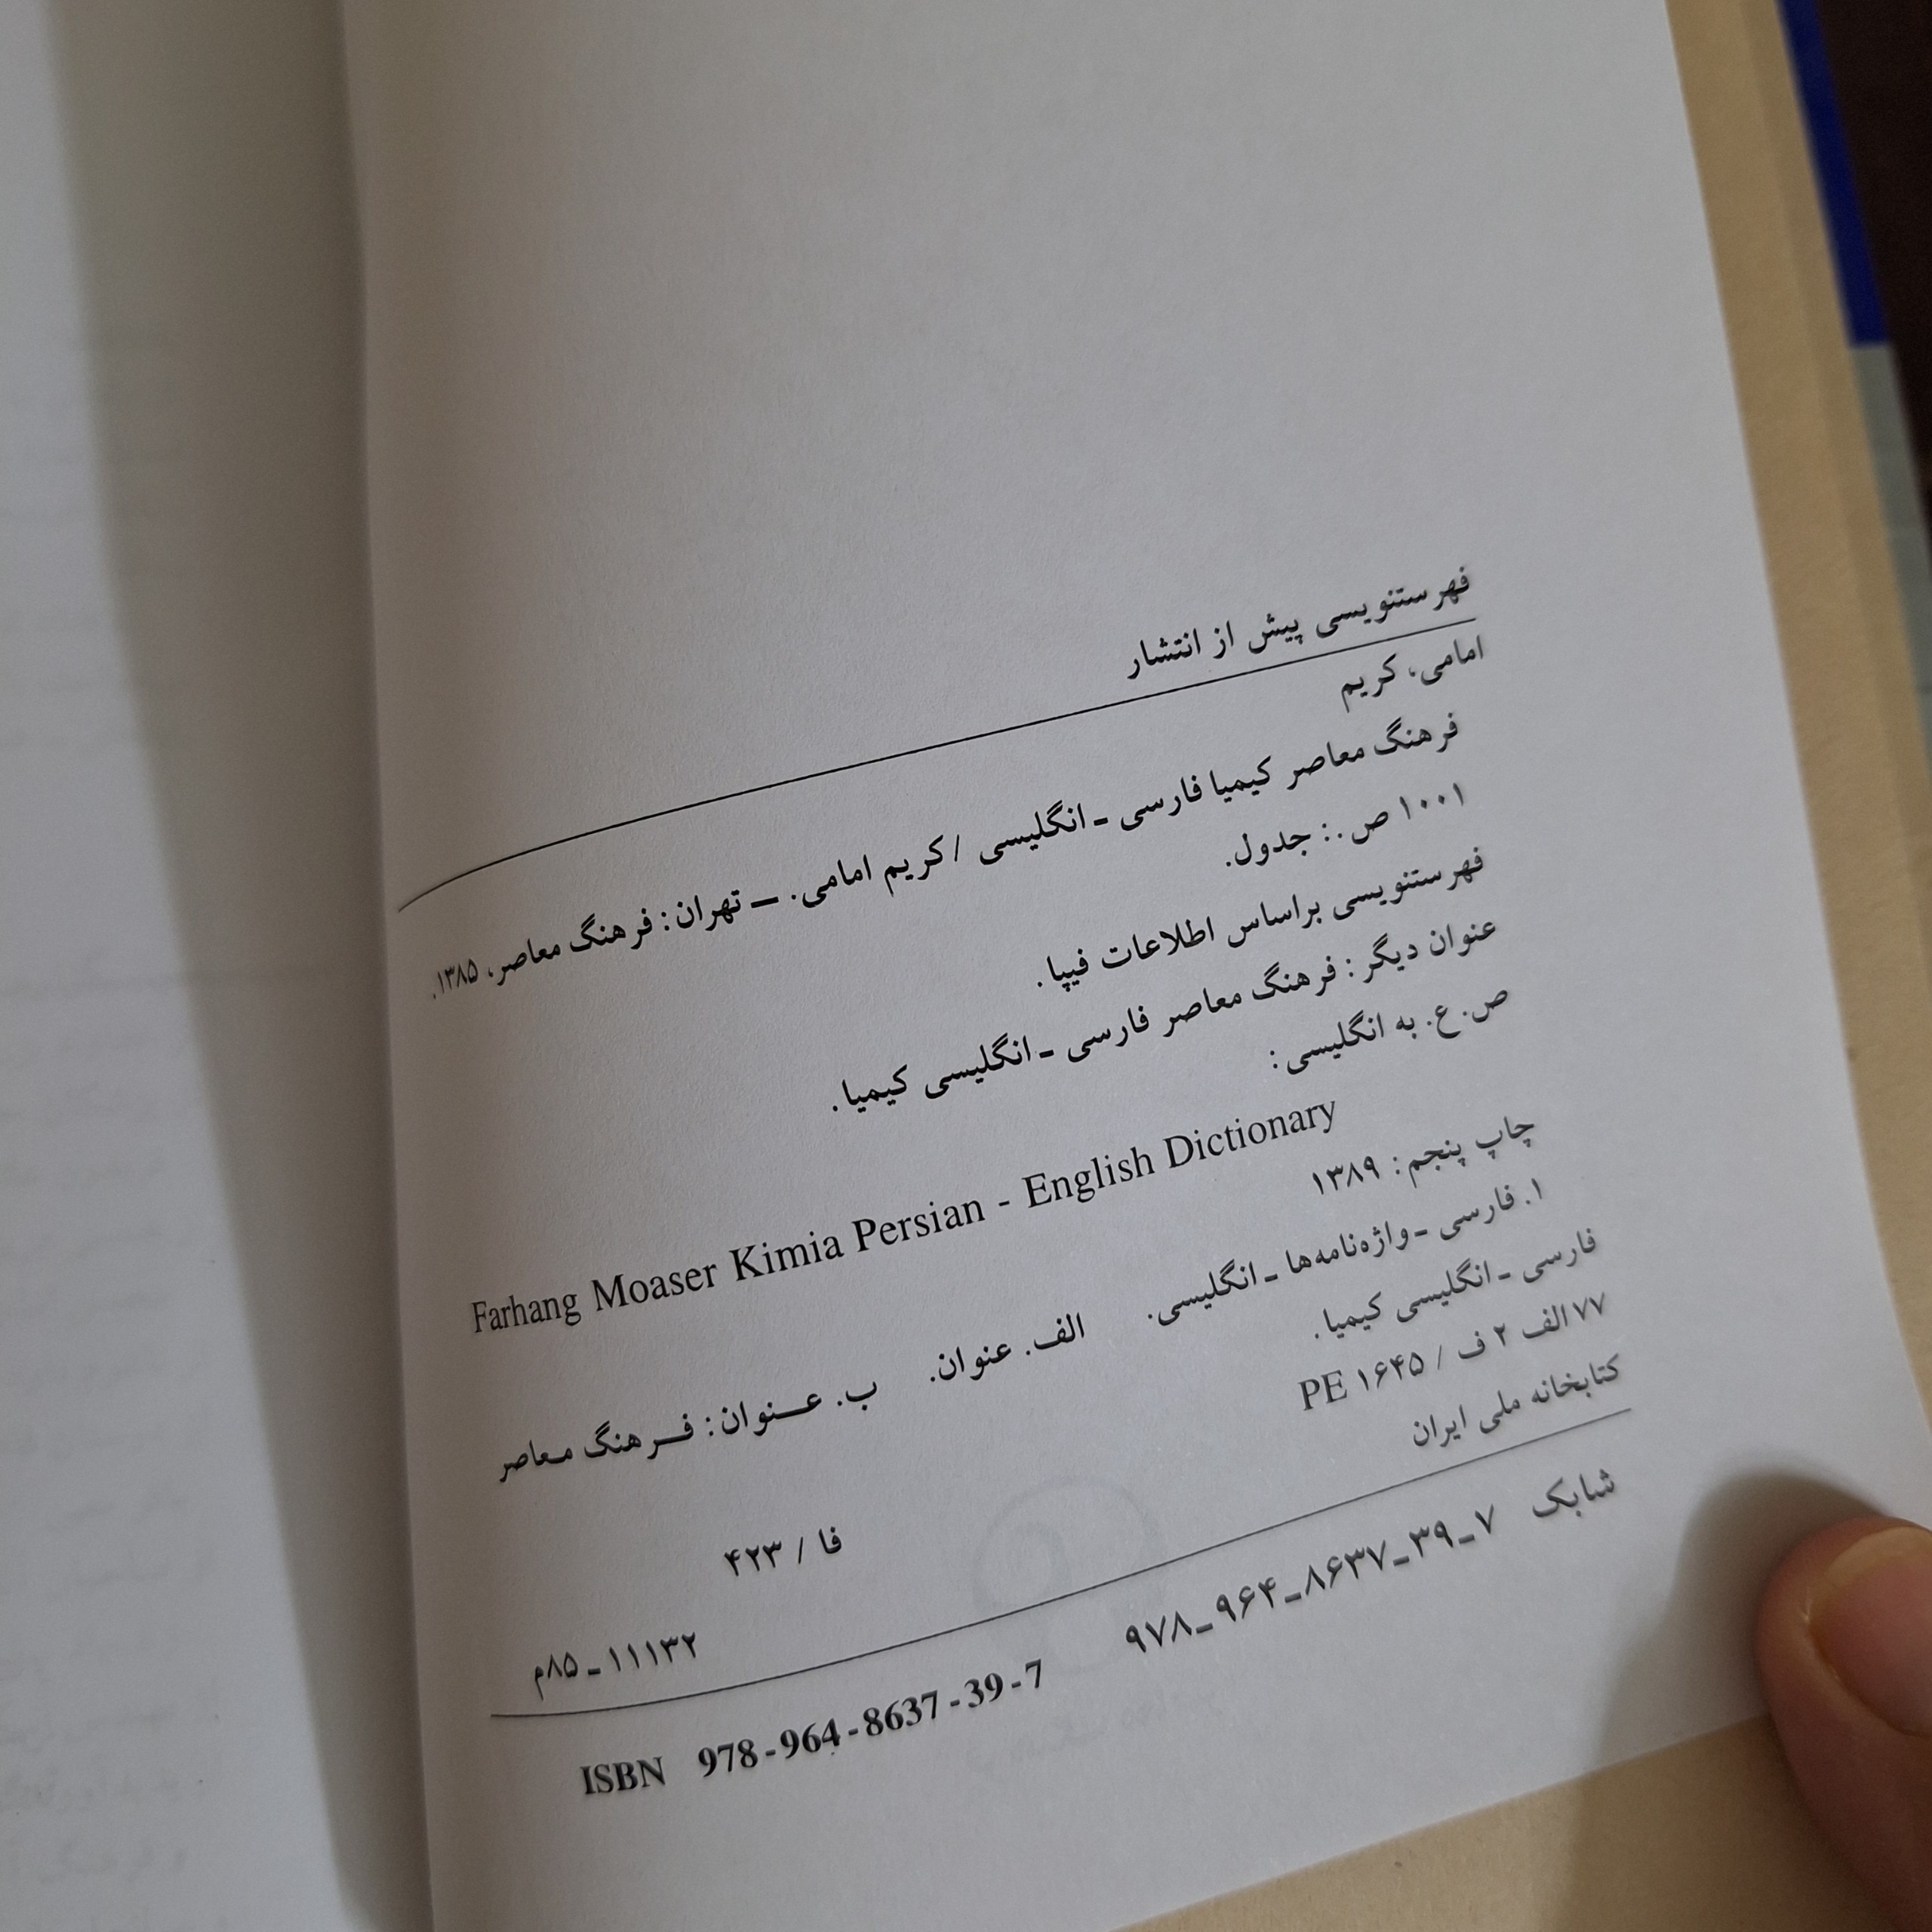 فهرستنویسی پیش از انتشار
امامی، کریم
فرهنگ معاصر کیمیا فارسی ـ انگلیسی / کریم امامی. ــ تهران : فرهنگ معاصر، ۱۳۸۵.
۱۰۰۱ ص .: جدول.
فهرستنویسی براساس اطلاعات فیپا.
عنوان دیگر : فرهنگ معاصر فارسی ـ انگلیسی کیمیا.
ص. ع. به انگلیسی :
Farhang Moaser Kimia Persian - English Dictionary
چاپ پنجم : ۱۳۸۹
۱. فارسی ـ واژه‌نامه‌ها ـ انگلیسی. الف. عنوان. ب. عنوان : فرهنگ معاصر
فارسی ـ انگلیسی کیمیا.
۷۷ الف ۲ ف / PE ۱۶۴۵ فا / ۴۲۳
کتابخانه ملی ایران ۱۱۱۳۲ ـ ۸۵م
شابک ۷ـ۳۹ـ۸۶۳۷ـ۹۶۴ـ۹۷۸ ISBN 978-964-8637-39-7